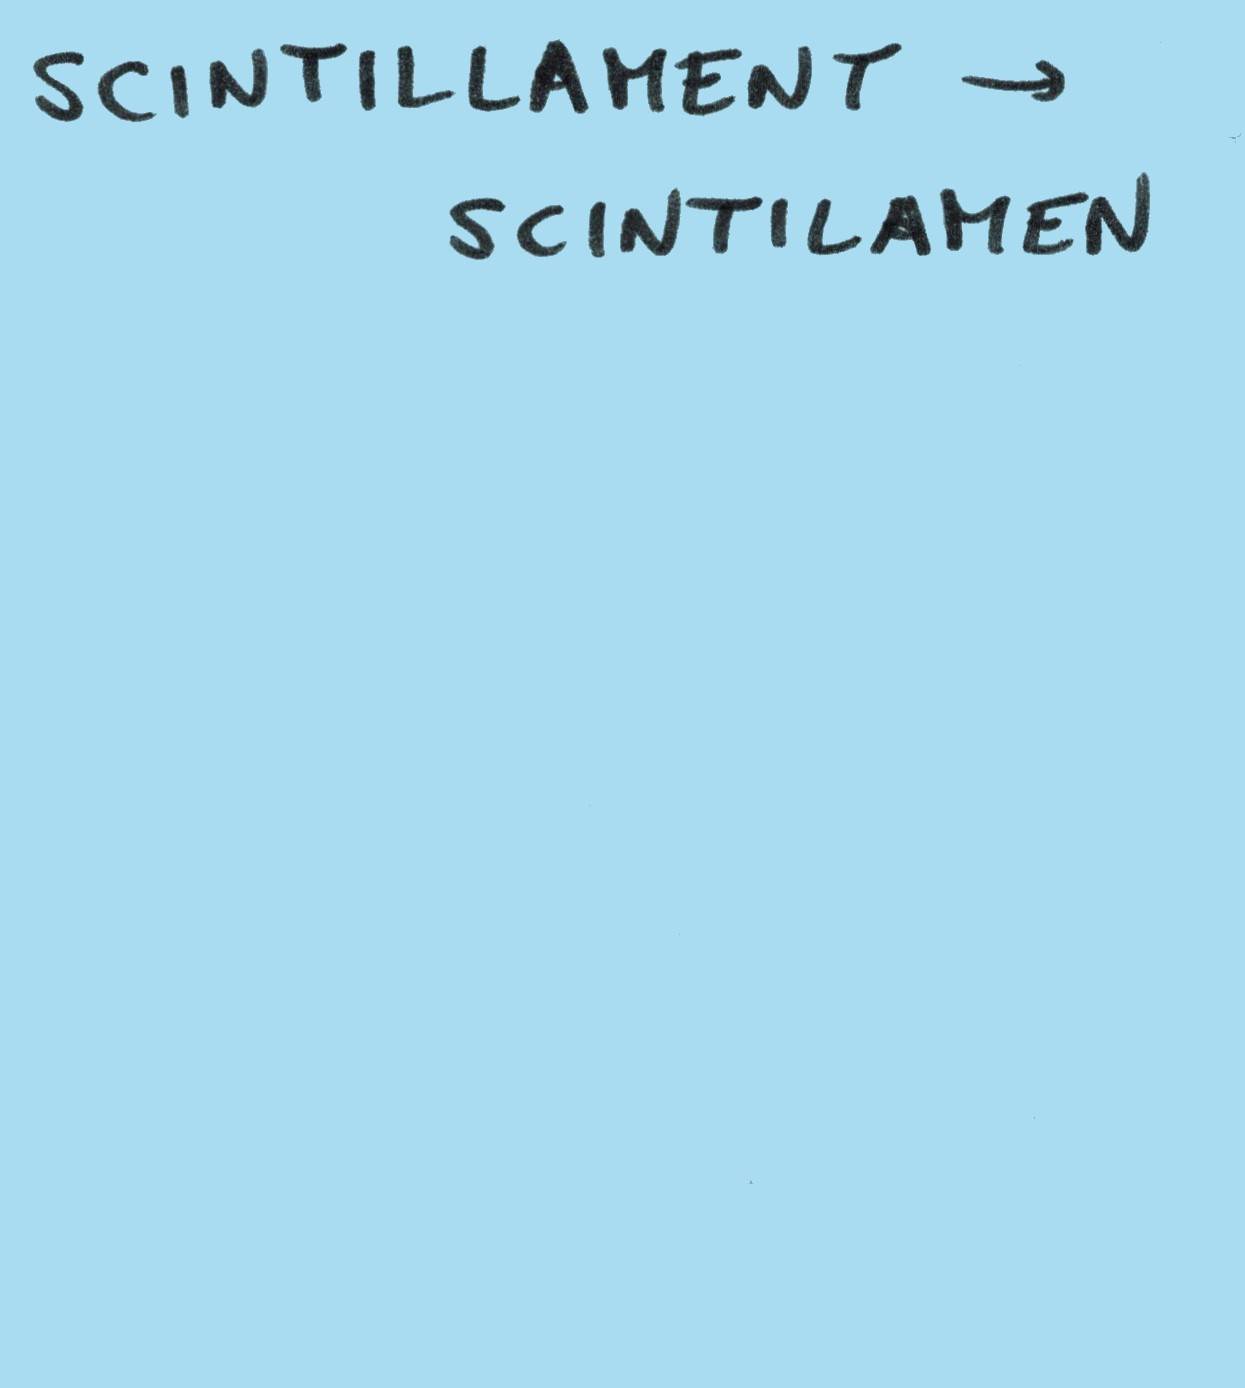 SCINTILLAMENT →
SCINTILAMEN